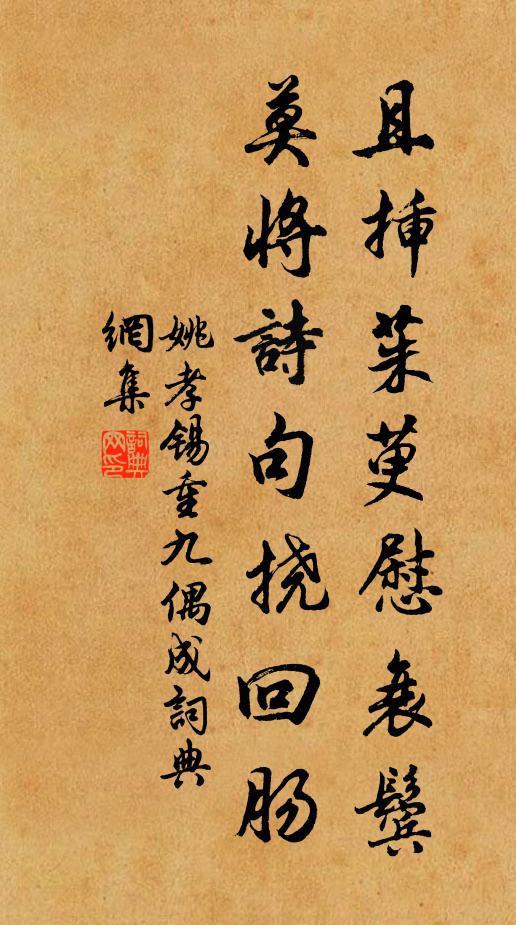 且挿茱萸慰衰鬢
莫將詩句挠回肠
姚孝锡重九偶成詞典
網集
詞典
网印